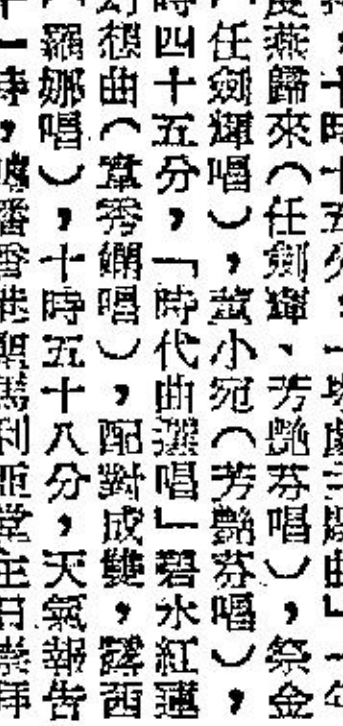 十五分,
度燕歸來(任劍輝、芳艷芬唱),祭金
任劍輝唱),董小宛(芳艷芬唱),
時四十五分,「時代曲選唱」碧水紅蓮
幻想曲(韋秀嫻唱),配對成雙,露西
羅娜唱),十時五十八分,天氣報告
香港聖馬利亞堂主日崇拜